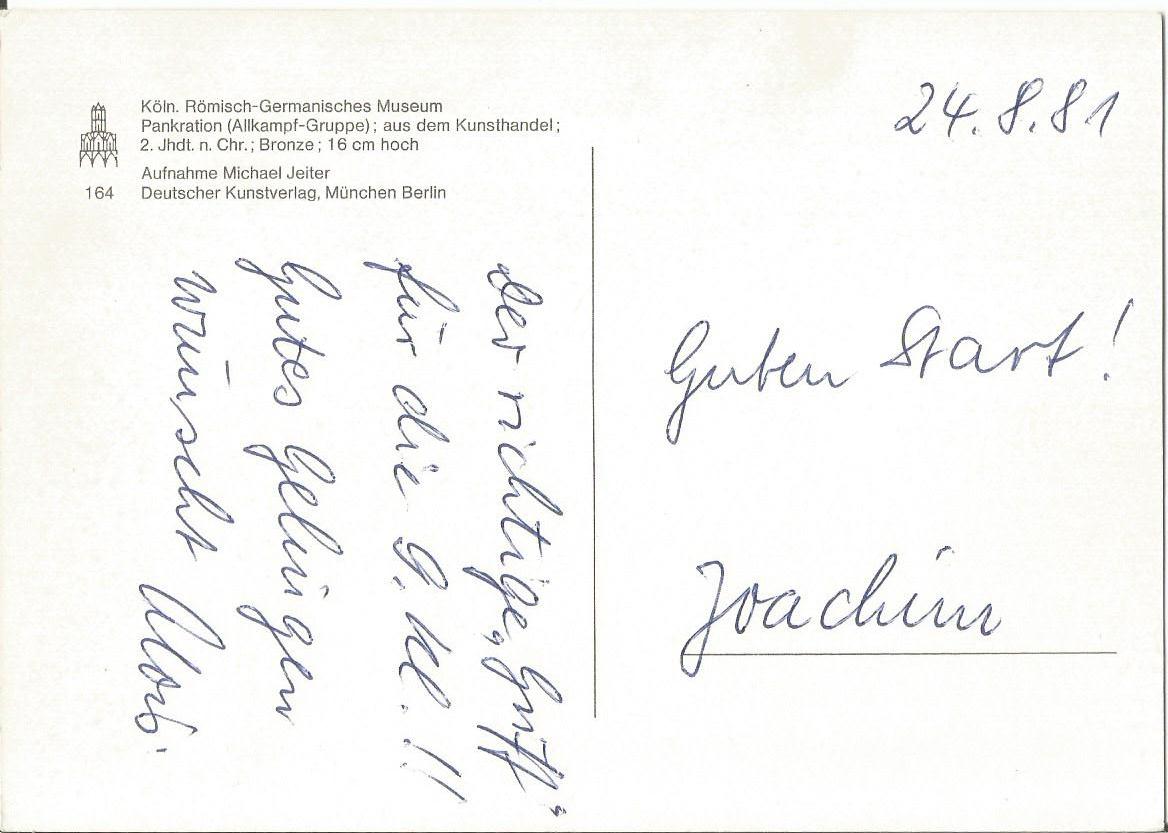 Köln. Römisch-Germanisches Museum
Pankration (Allkampf-Gruppe); aus dem Kunsthandel;
2. Jhdt. n. Chr.; Bronze; 16 cm hoch
Aufnahme Michael Jeiter
164 Deutscher Kunstverlag, München Berlin
der richtige „Griff“
für die 9. Kl. !!
Gutes Gelingen
wünscht
24.8.81
Guten Start!
Joachim